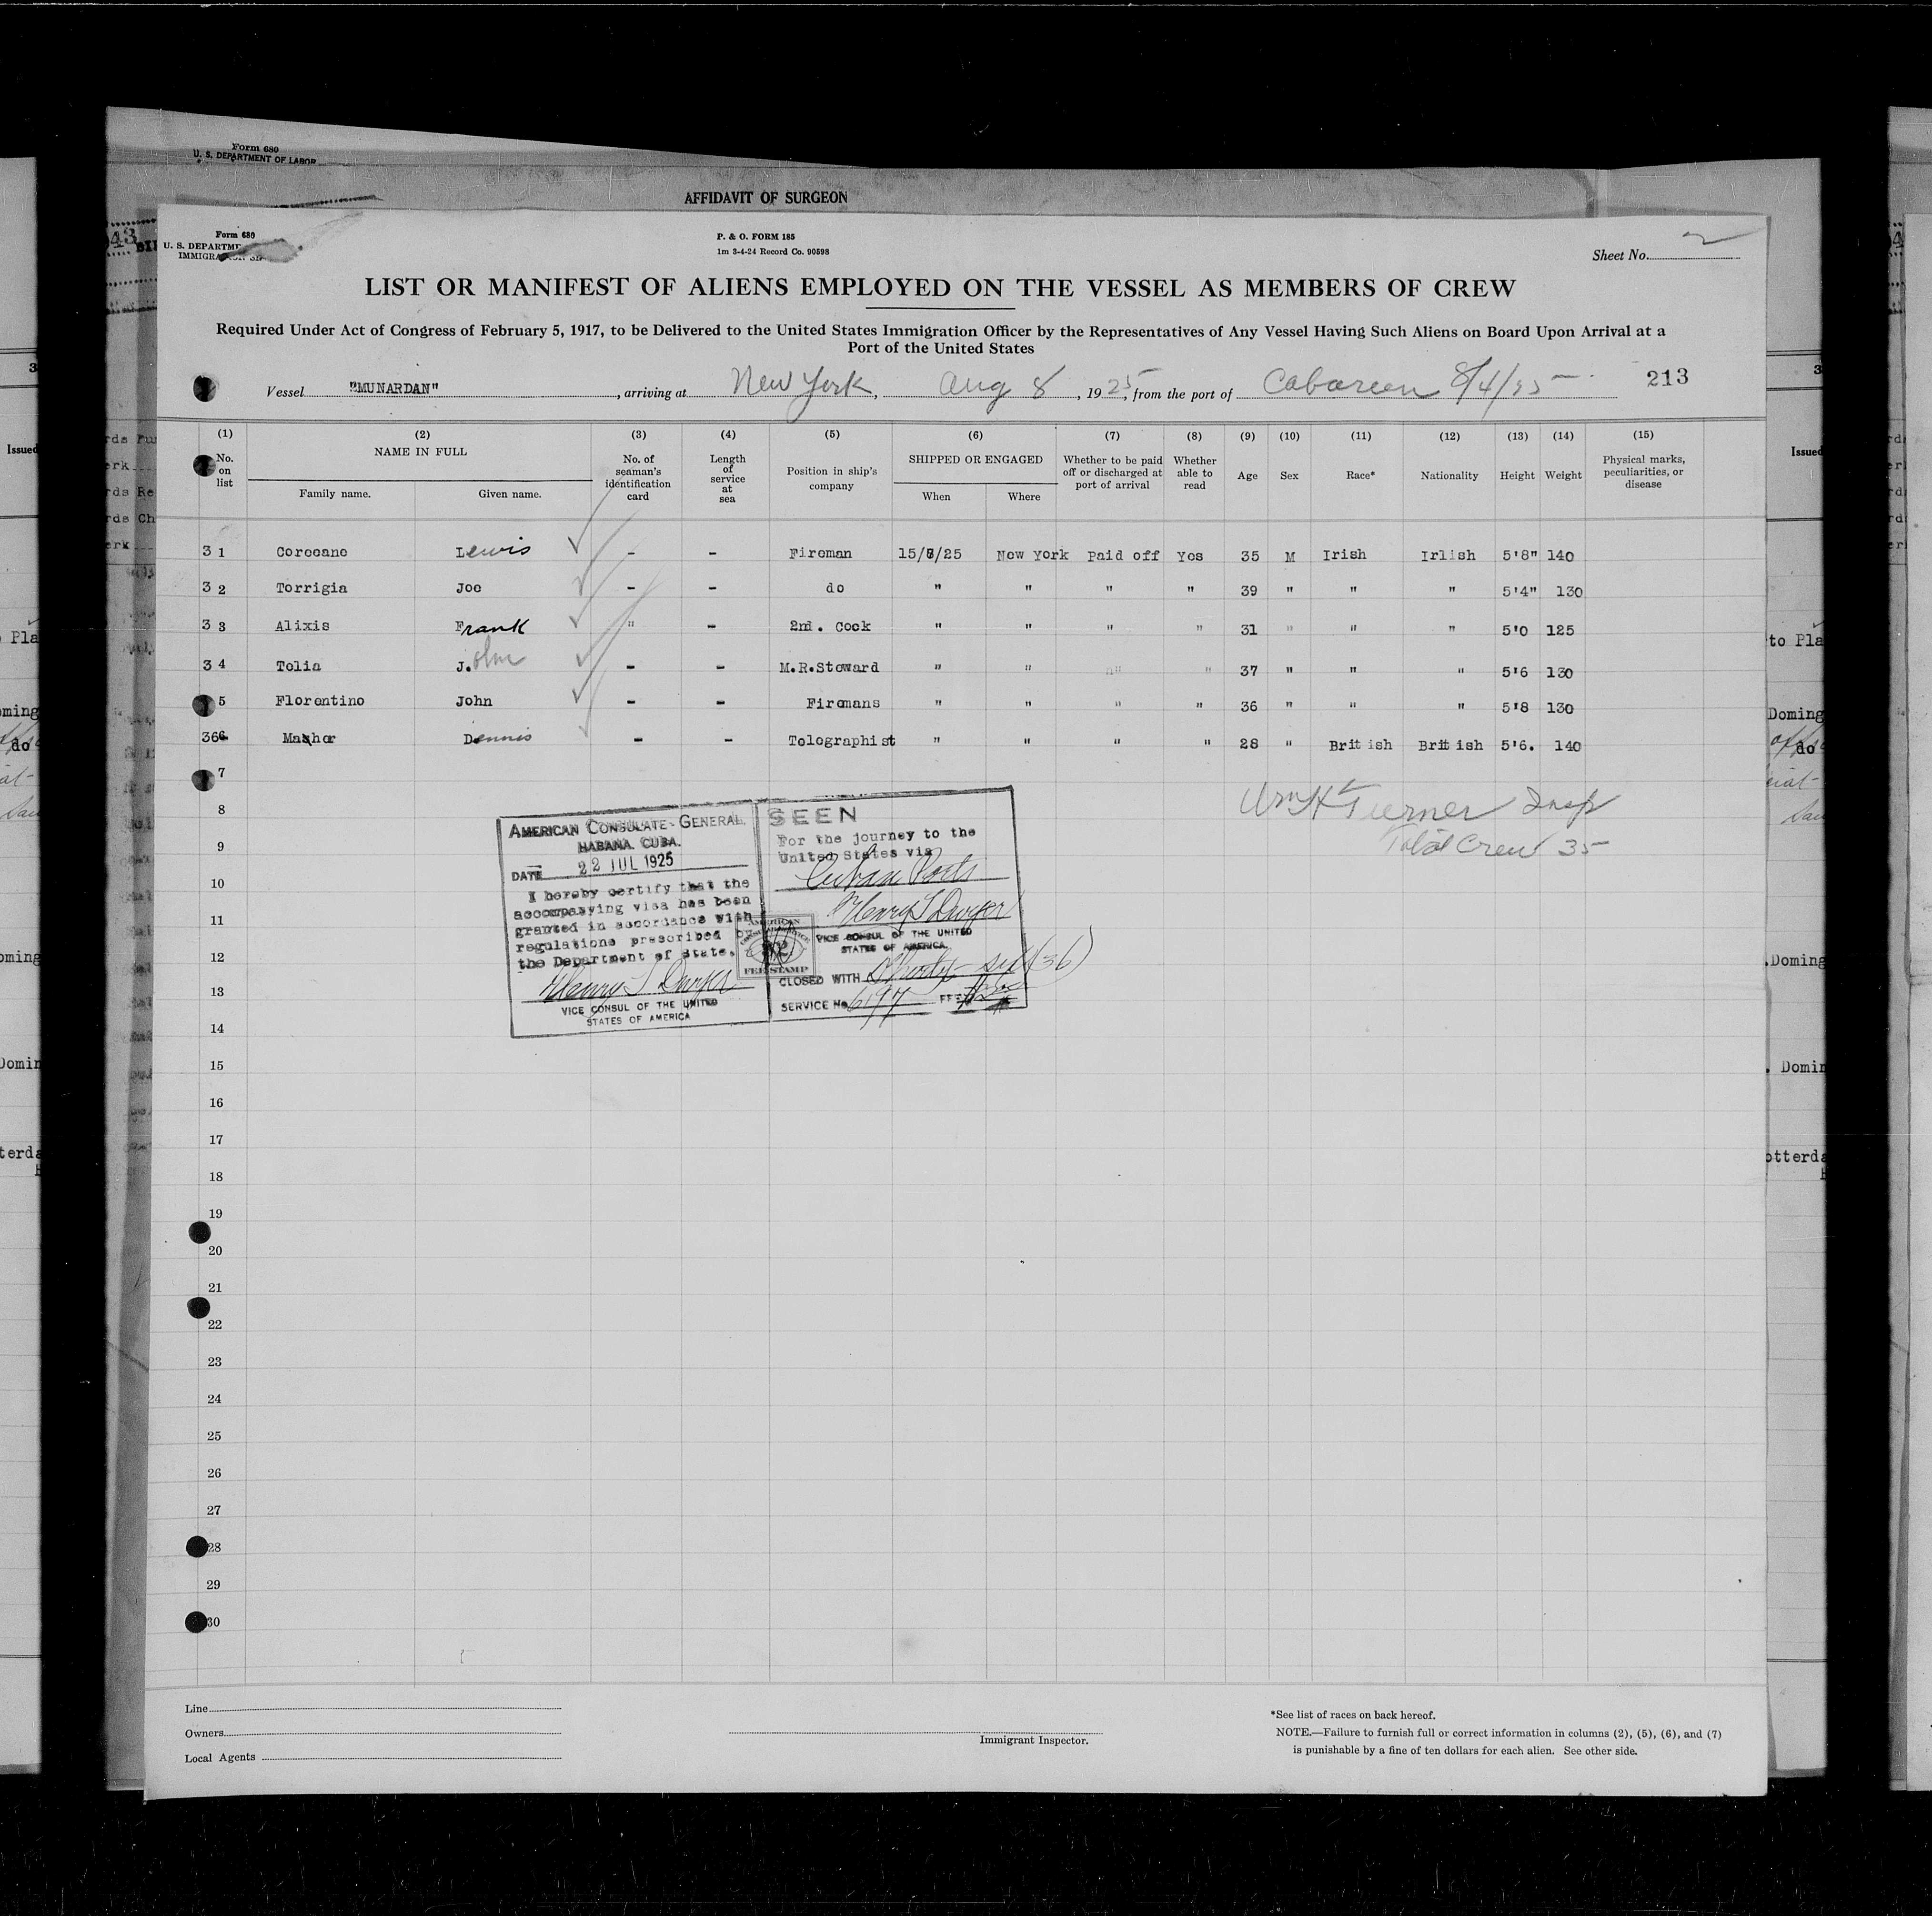 Form 680
U. S. DEPARTMENT OF LABOR
AFFIDAVIT OF SURGEON
Form 680
U. S. DEPARTME
IMMIGRA
P. & O. FORM 185
1m 3-4-24 Record Co. 90598
Sheet No. 2
LIST OR MANIFEST OF ALIENS EMPLOYED ON THE VESSEL AS MEMBERS OF CREW
Required Under Act of Congress of February 5, 1917, to be Delivered to the United States Immigration Officer by the Representatives of Any Vessel Having Such Aliens on Board Upon Arrival at a
Port of the United States
Vessel "MUNARDAN", arriving at New York, Aug 8, 1925, from the port of 8/4/25 213
(1) (2) (3) (4) (5) (6) (7) (8) (9) (10) (11) (12) (13) (14) (15)
No. on list NAME IN FULL Family name. Given name. No. of seaman's identification card Length of service at sea Position in ship's company SHIPPED OR ENGAGED When Where Whether to be paid off or discharged at port of arrival Whether able to read Age Sex Race* Nationality Height Weight Physical marks, peculiarities, or disease
3 1 Corocano Lewis - - Fireman 15/6/25 New York Paid off Yes 35 M Irish Irlish 5'8" 140
3 2 Torrigia Joe - - do " " " " 39 " " " 5'4" 130
3 3 Alixis Frank " - 2nd. Cock " " " " 31 " " " 5'0 125
3 4 Tolia J.ohn - - M.R.Steward " " " " 37 " " " 5'6 130
5 Florentino John - - Firemans " " " " 36 " " " 5'8 130
366 Maher Dennis - - Tolographist " " " " 28 " British British 5'6. 140
7
8
9
10
11
12
13
14
15
16
17
18
19
20
21
22
23
24
25
26
27
28
29
30
Wm H Turner Insp
Total Crew 35
AMERICAN CONSULATE-GENERAL,
HABANA. CUBA.
DATE 22 JUL 1925
I hereby certify that the
accompanying visa has been
granted in accordance with
regulations prescribed by
the Department of State.
Henry T Dwyer
VICE CONSUL OF THE UNITED
STATES OF AMERICA
SEEN
For the journey to the
United States via
Cuban Ports
Henry T Dwyer
VICE CONSUL OF THE UNITED
STATES OF AMERICA.
CLOSED WITH Thirty-six (36)
SERVICE No. 6197 FEE
AMERICAN
CONSULAR SERVICE
FEE STAMP
Line
Owners
Local Agents
Immigrant Inspector.
*See list of races on back hereof.
NOTE.—Failure to furnish full or correct information in columns (2), (5), (6), and (7)
is punishable by a fine of ten dollars for each alien. See other side.